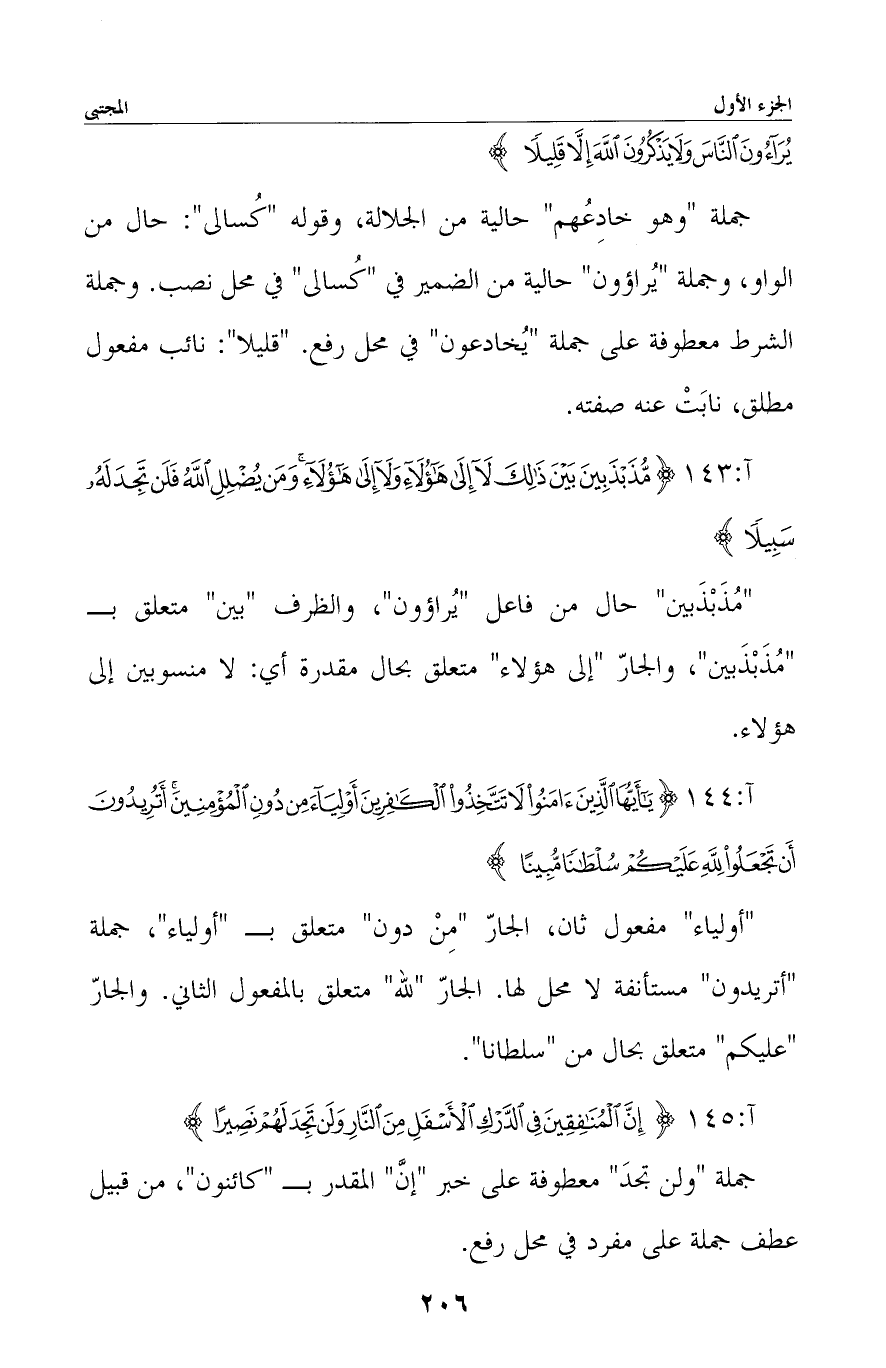 الجزء الأول المجتبى
يُرَآءُونَ ٱلنَّاسَ وَلَا يَذْكُرُونَ ٱللَّهَ إِلَّا قَلِيلًا ﴾
جملة "وهو خادِعُهم" حالية من الجلالة، وقوله "كُسالى": حال من
الواو، وجملة "يُراؤون" حالية من الضمير في "كُسالى" في محل نصب. وجملة
الشرط معطوفة على جملة "يُخادعون" في محل رفع. "قليلا": نائب مفعول
مطلق، نابَتْ عنه صفته.
آ:١٤٣ ﴿ مُّذَبْذَبِينَ بَيْنَ ذَٰلِكَ لَآ إِلَىٰ هَٰٓؤُلَآءِ وَلَآ إِلَىٰ هَٰٓؤُلَآءِ ۚ وَمَن يُضْلِلِ ٱللَّهُ فَلَن تَجِدَ لَهُۥ
سَبِيلًا ﴾
"مُذَبْذَبين" حال من فاعل "يُراؤون"، والظرف "بين" متعلق بـ
"مُذَبْذَبين"، والجارّ "إلى هؤلاء" متعلق بحال مقدرة أي: لا منسوبين إلى
هؤلاء.
آ:١٤٤ ﴿ يَٰٓأَيُّهَا ٱلَّذِينَ ءَامَنُوا۟ لَا تَتَّخِذُوا۟ ٱلْكَٰفِرِينَ أَوْلِيَآءَ مِن دُونِ ٱلْمُؤْمِنِينَ ۚ أَتُرِيدُونَ
أَن تَجْعَلُوا۟ لِلَّهِ عَلَيْكُمْ سُلْطَٰنًا مُّبِينًا ﴾
"أولياء" مفعول ثان، الجارّ "مِنْ دون" متعلق بـ "أولياء"، جملة
"أتريدون" مستأنفة لا محل لها. الجارّ "لله" متعلق بالمفعول الثاني. والجارّ
"عليكم" متعلق بحال من "سلطانا".
آ:١٤٥ ﴿ إِنَّ ٱلْمُنَٰفِقِينَ فِى ٱلدَّرْكِ ٱلْأَسْفَلِ مِنَ ٱلنَّارِ وَلَن تَجِدَ لَهُمْ نَصِيرًا ﴾
جملة "ولن تجدَ" معطوفة على خبر "إنَّ" المقدر بـ "كائنون"، من قبيل
عطف جملة على مفرد في محل رفع.
٢٠٦